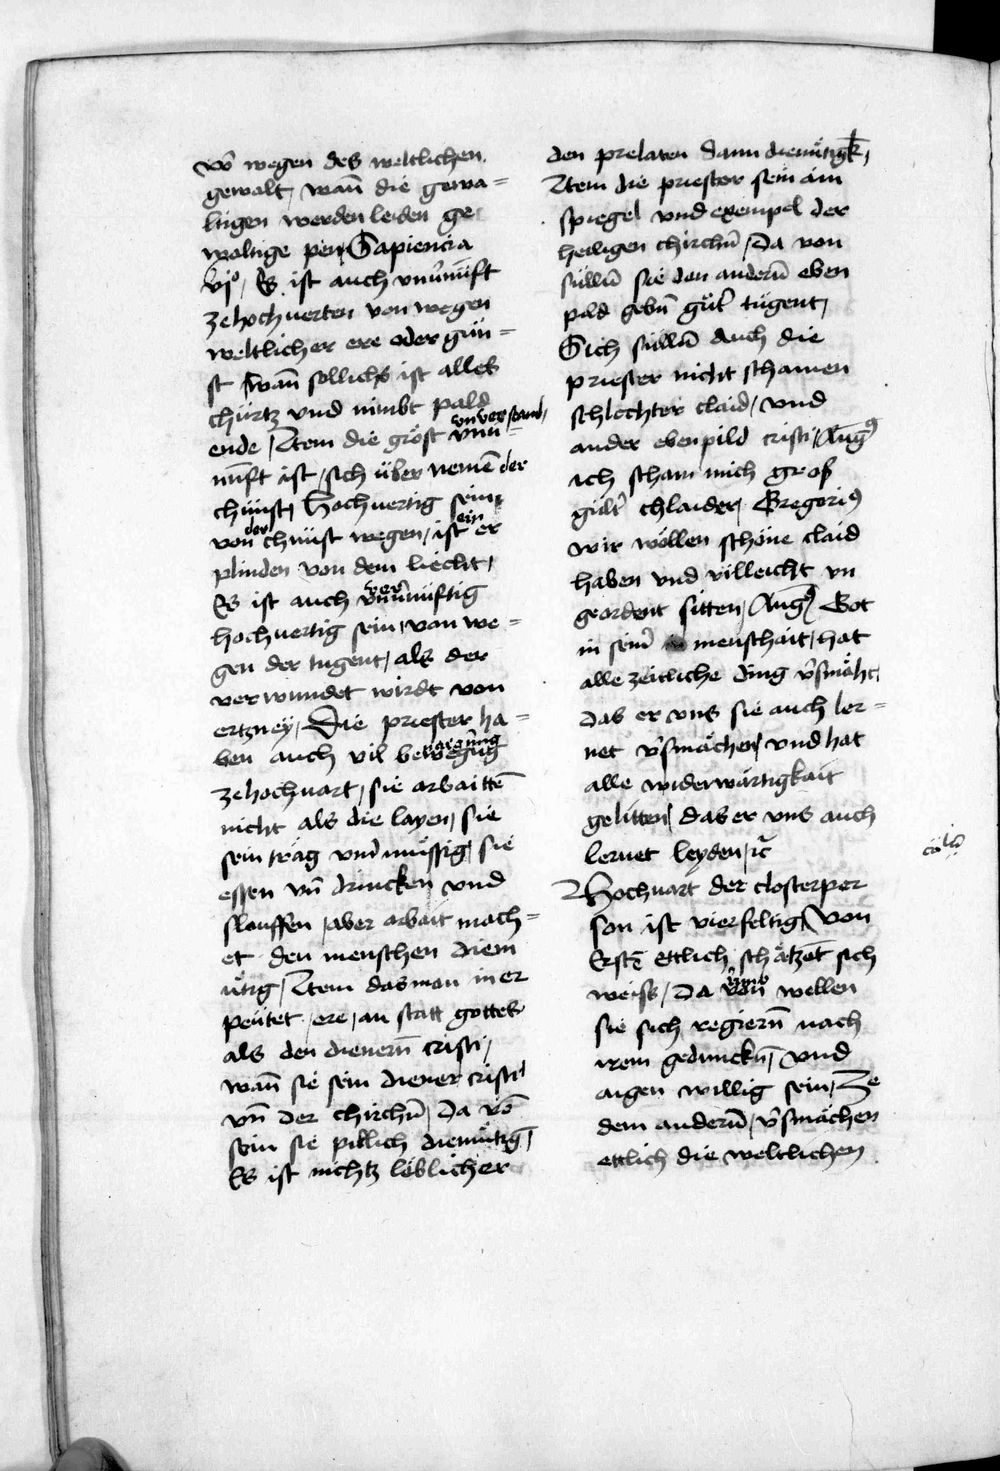 võ wegen des weltlichen
gewalt, wañ die gewa=
ltigen werden leiden ge
waltige pen, Sapiencia
vjº, Es ist auch vnũnũft
ze hochuerten von wegen
weltlicher ere oder gün=
st wañ sollichs ist alles
chürtz vnd nimbt pald
ende, Item die gröst vnu=
unverstand,
nũft ist, sich über nemẽ der
chünst, Hochuertig sein
von der chünst wegen, ist ein er
plinden von dem liecht,
Es ist auch vnũnüftig
ver
hochuertig sein, von we=
gen der tugent, als der
verwundet wirdt von
ertzney, Die priester ha=
ben auch vil bewegũg
ze hochuart, sie arbaittẽ
nicht als die layen, sie
sein träg vnd müssig, sie
essen vñ drincken vnd
slauffen, aber arbait mach=
et den menschen diem
ütig, Item das man in er
peütet, ere, an statt gottes
als den dienerñ cristi,
wañ sie sein diener cristi
vñ der chirchñ, Da võ
sein sie pillich diemütig,
Es ist nichtz löblicher
den prelaten dann diemütigk,
Item die priester sein ain
spiegel vnd exempel der
heiligen chirchñ, Da von
süllñ sie den anderñ eben
pild gebñ gůter tugent,
Sich süllñ auch die
priester nicht schamen
schlechter claid, vnd
ander ebenpild cristi, Aug9
ich scham mich gros
güter chlaider, Gregori9
wir wöllen schöne claid
haben vnd villeicht vn
geordent sitten, Aug9 Got
in seiner menschait, hat
alle zeitliche ding v̾smäht,
das er vns sie auch ler=
net v̾smächen, vnd hat
alle widerwärtigkait
gelitten, das er vns auch
lernet leyden, ꝛc̃
Hochuart der closterper
son ist vierfeltig, Von
Erstẽ ettlich schätzẽt sich
weiss, Da von wellen
sie sich regierñ nach
irem gedunckñ, vnd
aigen willig sein, Ze
dem anderñ, v̾smächen
ettlich die weltlichen